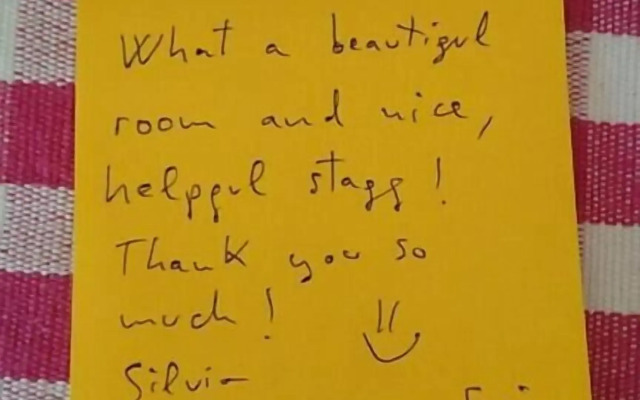 What a beautiful
room and nice,
helpful staff!
Thank you so
much!
Silvia